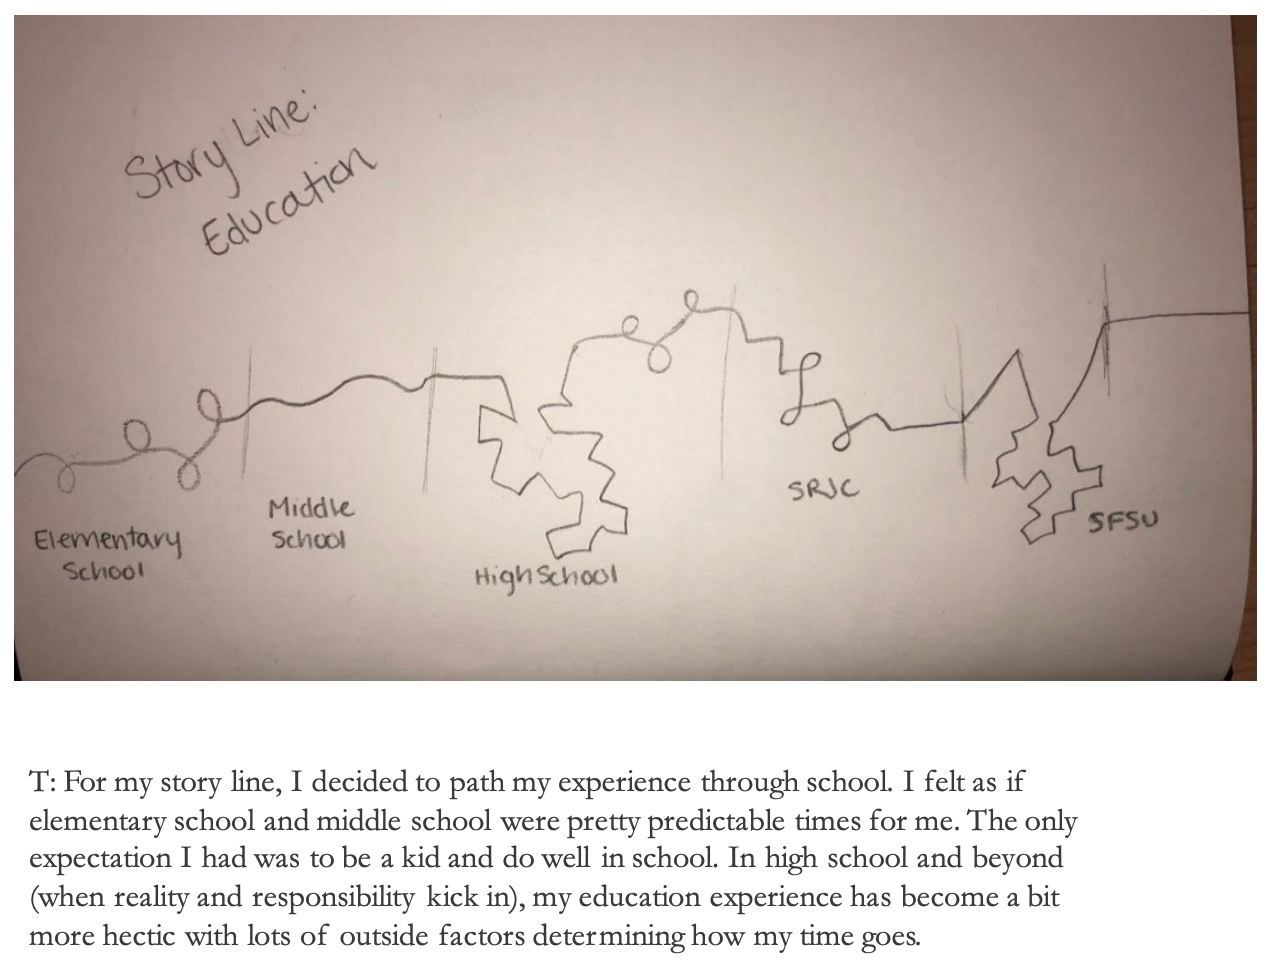 Story Line:
Education
Elementary
School
Middle
School
High School
SRJC
SFSU
T: For my story line, I decided to path my experience through school. I felt as if
elementary school and middle school were pretty predictable times for me. The only
expectation I had was to be a kid and do well in school. In high school and beyond
(when reality and responsibility kick in), my education experience has become a bit
more hectic with lots of outside factors determining how my time goes.